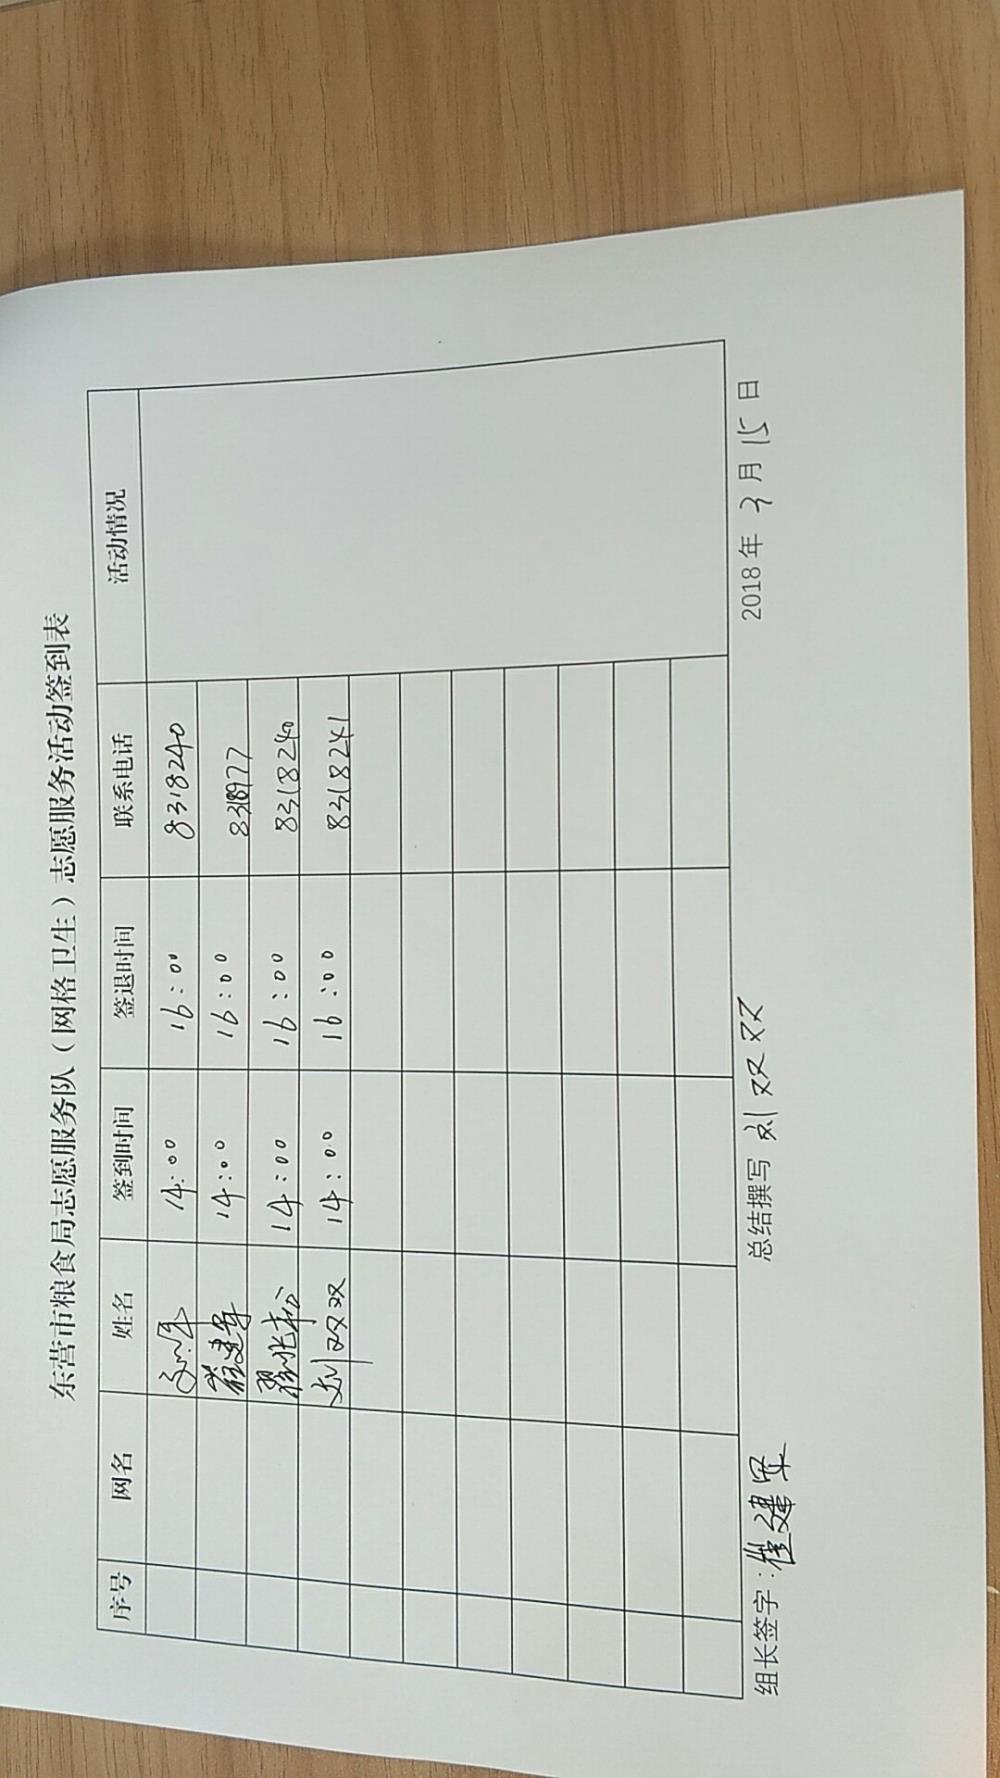 东营市粮食局志愿服务队（网格卫生）志愿服务活动签到表
序号 网名 姓名 签到时间 签退时间 联系电话 活动情况
14:00 16:00 8318240
崔建军 14:00 16:00 8318977
14:00 16:00 8318240
刘双双 14:00 16:00 8318241
组长签字：崔建军 总结撰写 刘双双 2018年3月15日